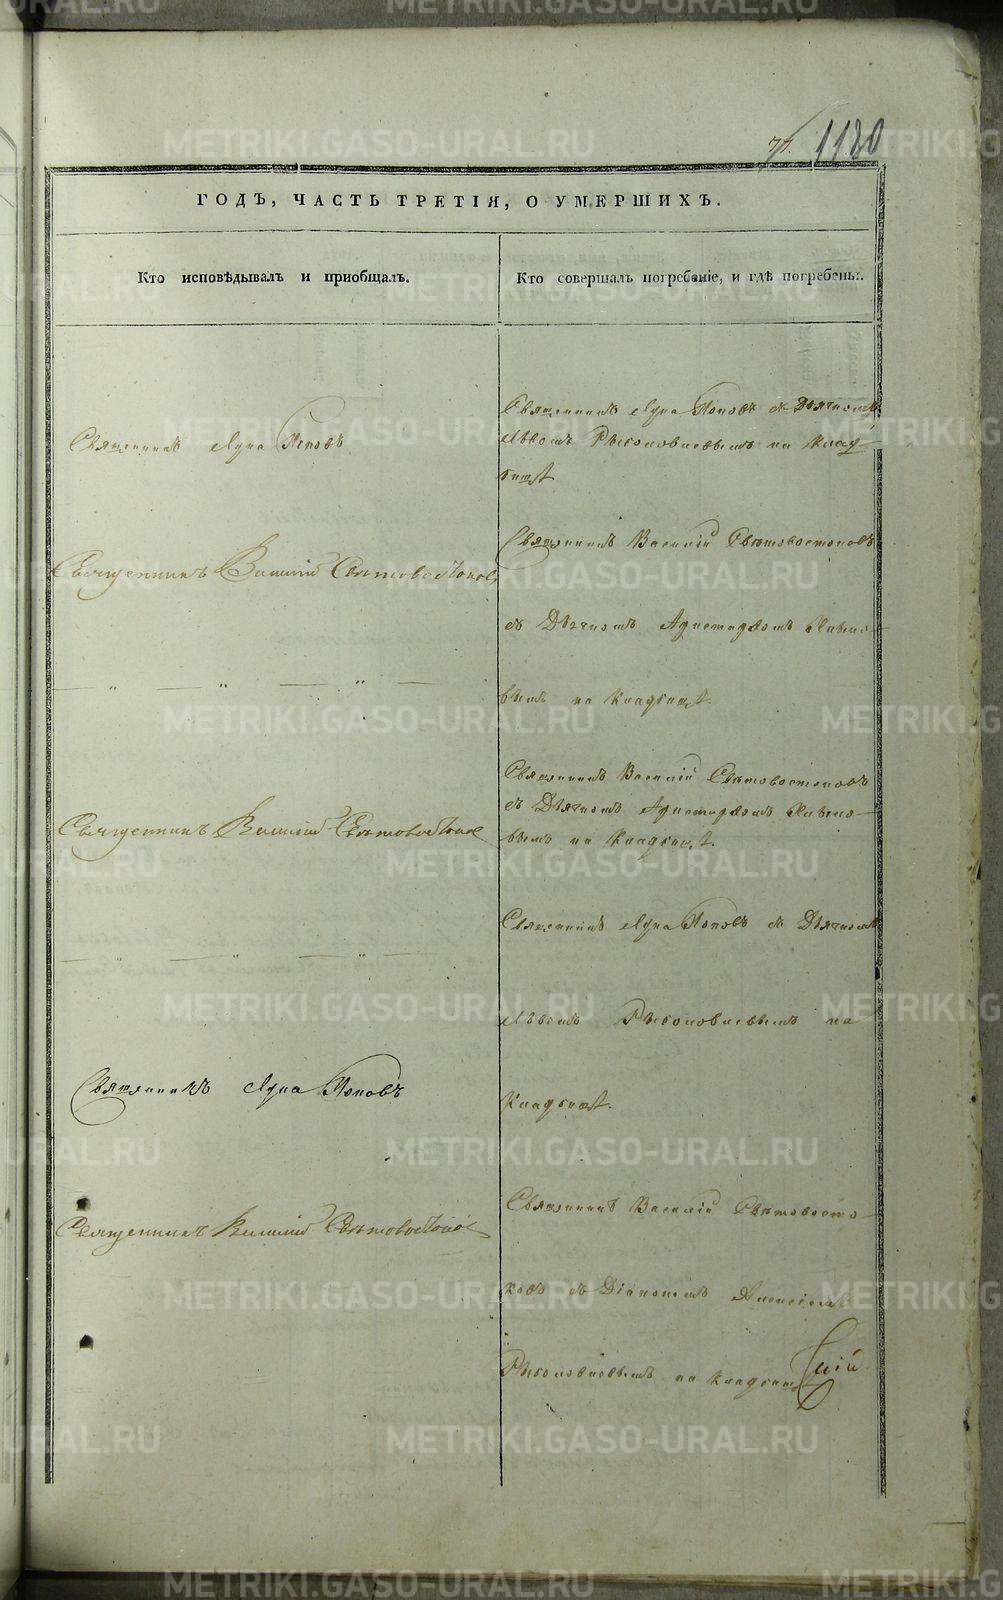 77. 1180
ГОДЪ, ЧАСТЬ ТРЕТІЯ, О УМЕРШИХЪ.
Кто исповѣдывалъ и пріобщалъ.
Кто совершалъ погребеніе, и гдѣ погребены.
Священникъ Лука Поповъ
Священникъ Лука Поповъ съ Дьячкомъ
на клад
бищѣ
Священникъ Василій Свѣтовостоковъ
Священникъ Василій Свѣтовостоковъ
съ Дьячкомъ Аристархомъ
вымъ на Кладбищѣ.
Священникъ Василій Свѣтовостоков
Священникъ Василій Свѣтовостоковъ
съ Дьячкомъ Аристархомъ
вымъ на Кладбищѣ.
Священникъ Лука Поповъ съ Дьячкомъ
на
Священникъ Лука Поповъ
Кладбищѣ.
Священникъ Василій Свѣтовостоков
Священникъ Василій Свѣтовосто
ковъ съ Діакономъ Алексіемъ
на кладбищѣ
METRIKI.GASO-URAL.RU